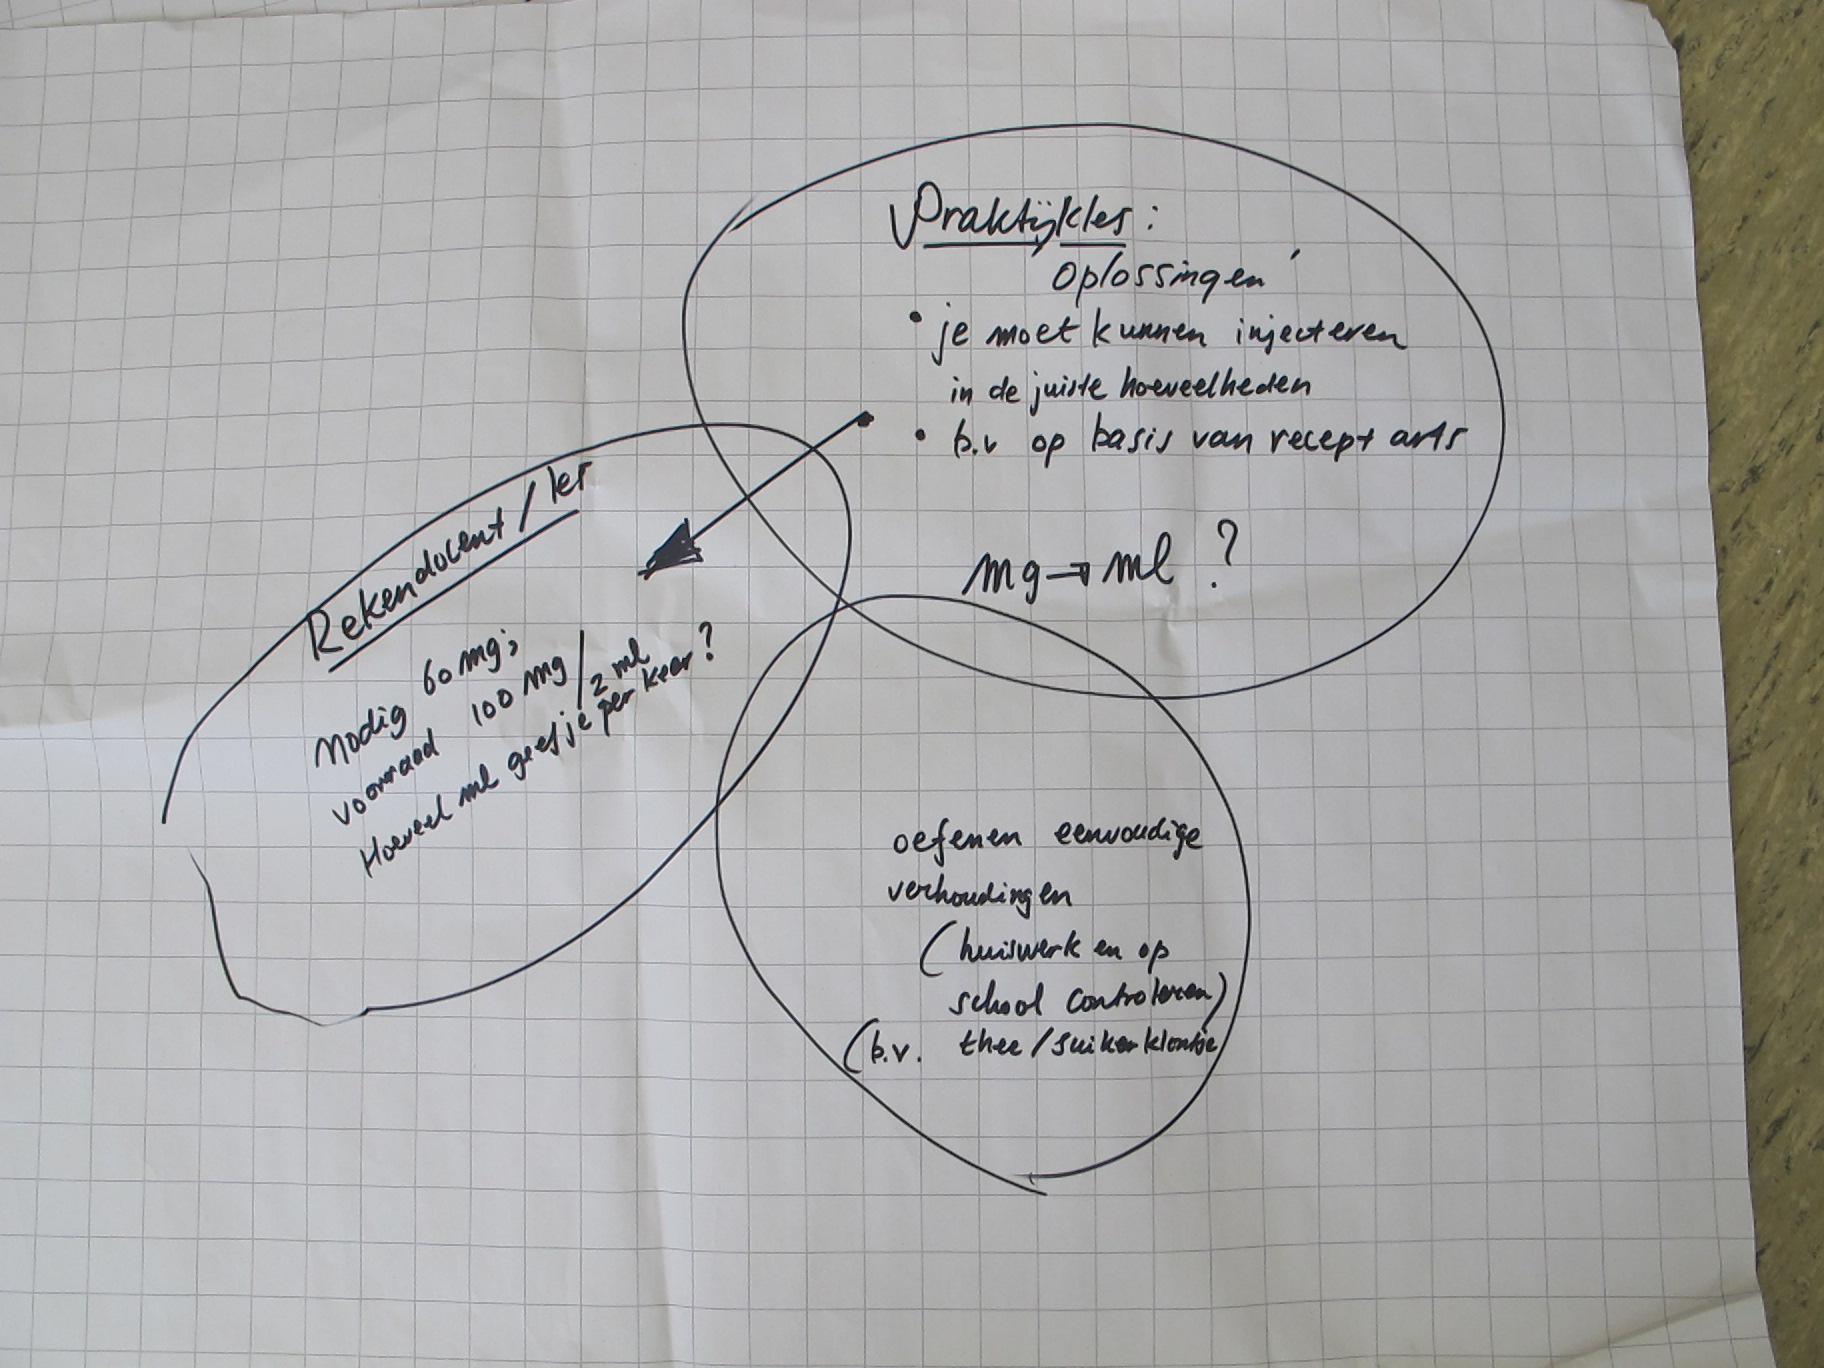 Praktijkles:
oplossingen'
• je moet kunnen injecteren
in de juiste hoeveelheden
• b.v op basis van recept arts
mg → ml ?
Rekendocent / les
Nodig 60 mg;
voorraad 100 mg / 2 ml
Hoeveel ml geef je per keer?
oefenen eenvoudige
verhoudingen
(huiswerk en op
school controleren)
(b.v. thee / suikerklontje